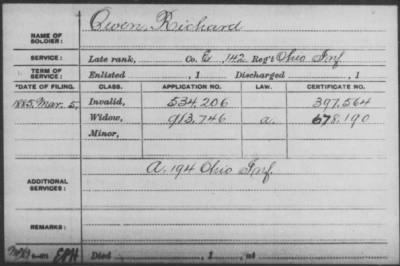 Owen, Richard
NAME OF SOLDIER:
SERVICE: Late rank, Co. E, 142 Reg't Ohio Inf.
TERM OF SERVICE: Enlisted , 1 Discharged , 1
*DATE OF FILING. CLASS. APPLICATION NO. LAW. CERTIFICATE NO.
1885, Mar. 5, Invalid, 534,206 397,564
Widow, 913,746 a. 678,190
Minor,
ADDITIONAL SERVICES: A, 194 Ohio Inf.
REMARKS:
Died , 1 , at